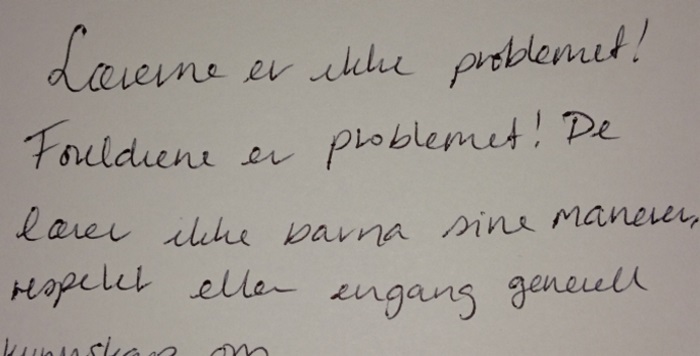 Lærerne er ikke problemet!
Foreldrene er problemet! De
lærer ikke barna sine manerer,
respekt eller engang generell
kunnskap om